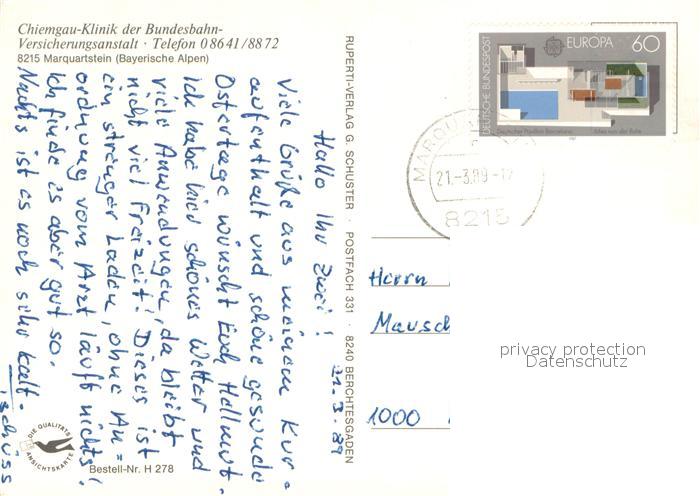 Chiemgau-Klinik der Bundesbahn-
Versicherungsanstalt · Telefon 08641/8872
8215 Marquartstein (Bayerische Alpen)
21.3.89
Hallo Ihr Zwei!
Viele Grüße aus meinem Kur=
aufenthalt und schöne gesunde
Ostertage wünscht Euch Hellmut.
Ich habe hier schönes Wetter und
viele Anwendungen, da bleibt
nicht viel Freizeit! Dieses ist
ein strenger Laden, ohne An=
ordnung vom Arzt läuft nichts!
Ich finde es aber gut so.
Nachts ist es noch sehr kalt.
Tschüss
DIE QUALITÄTS
ANSICHTSKARTE
Bestell-Nr. H 278
RUPERTI-VERLAG G. SCHUSTER · POSTFACH 331 · 8240 BERCHTESGADEN
DEUTSCHE BUNDESPOST
EUROPA 60
Deutscher Pavillon Barcelona
Mies van der Rohe
1987
MARQU
21.-3.89-12
8215
Herrn
Mausch
1000
privacy protection
Datenschutz